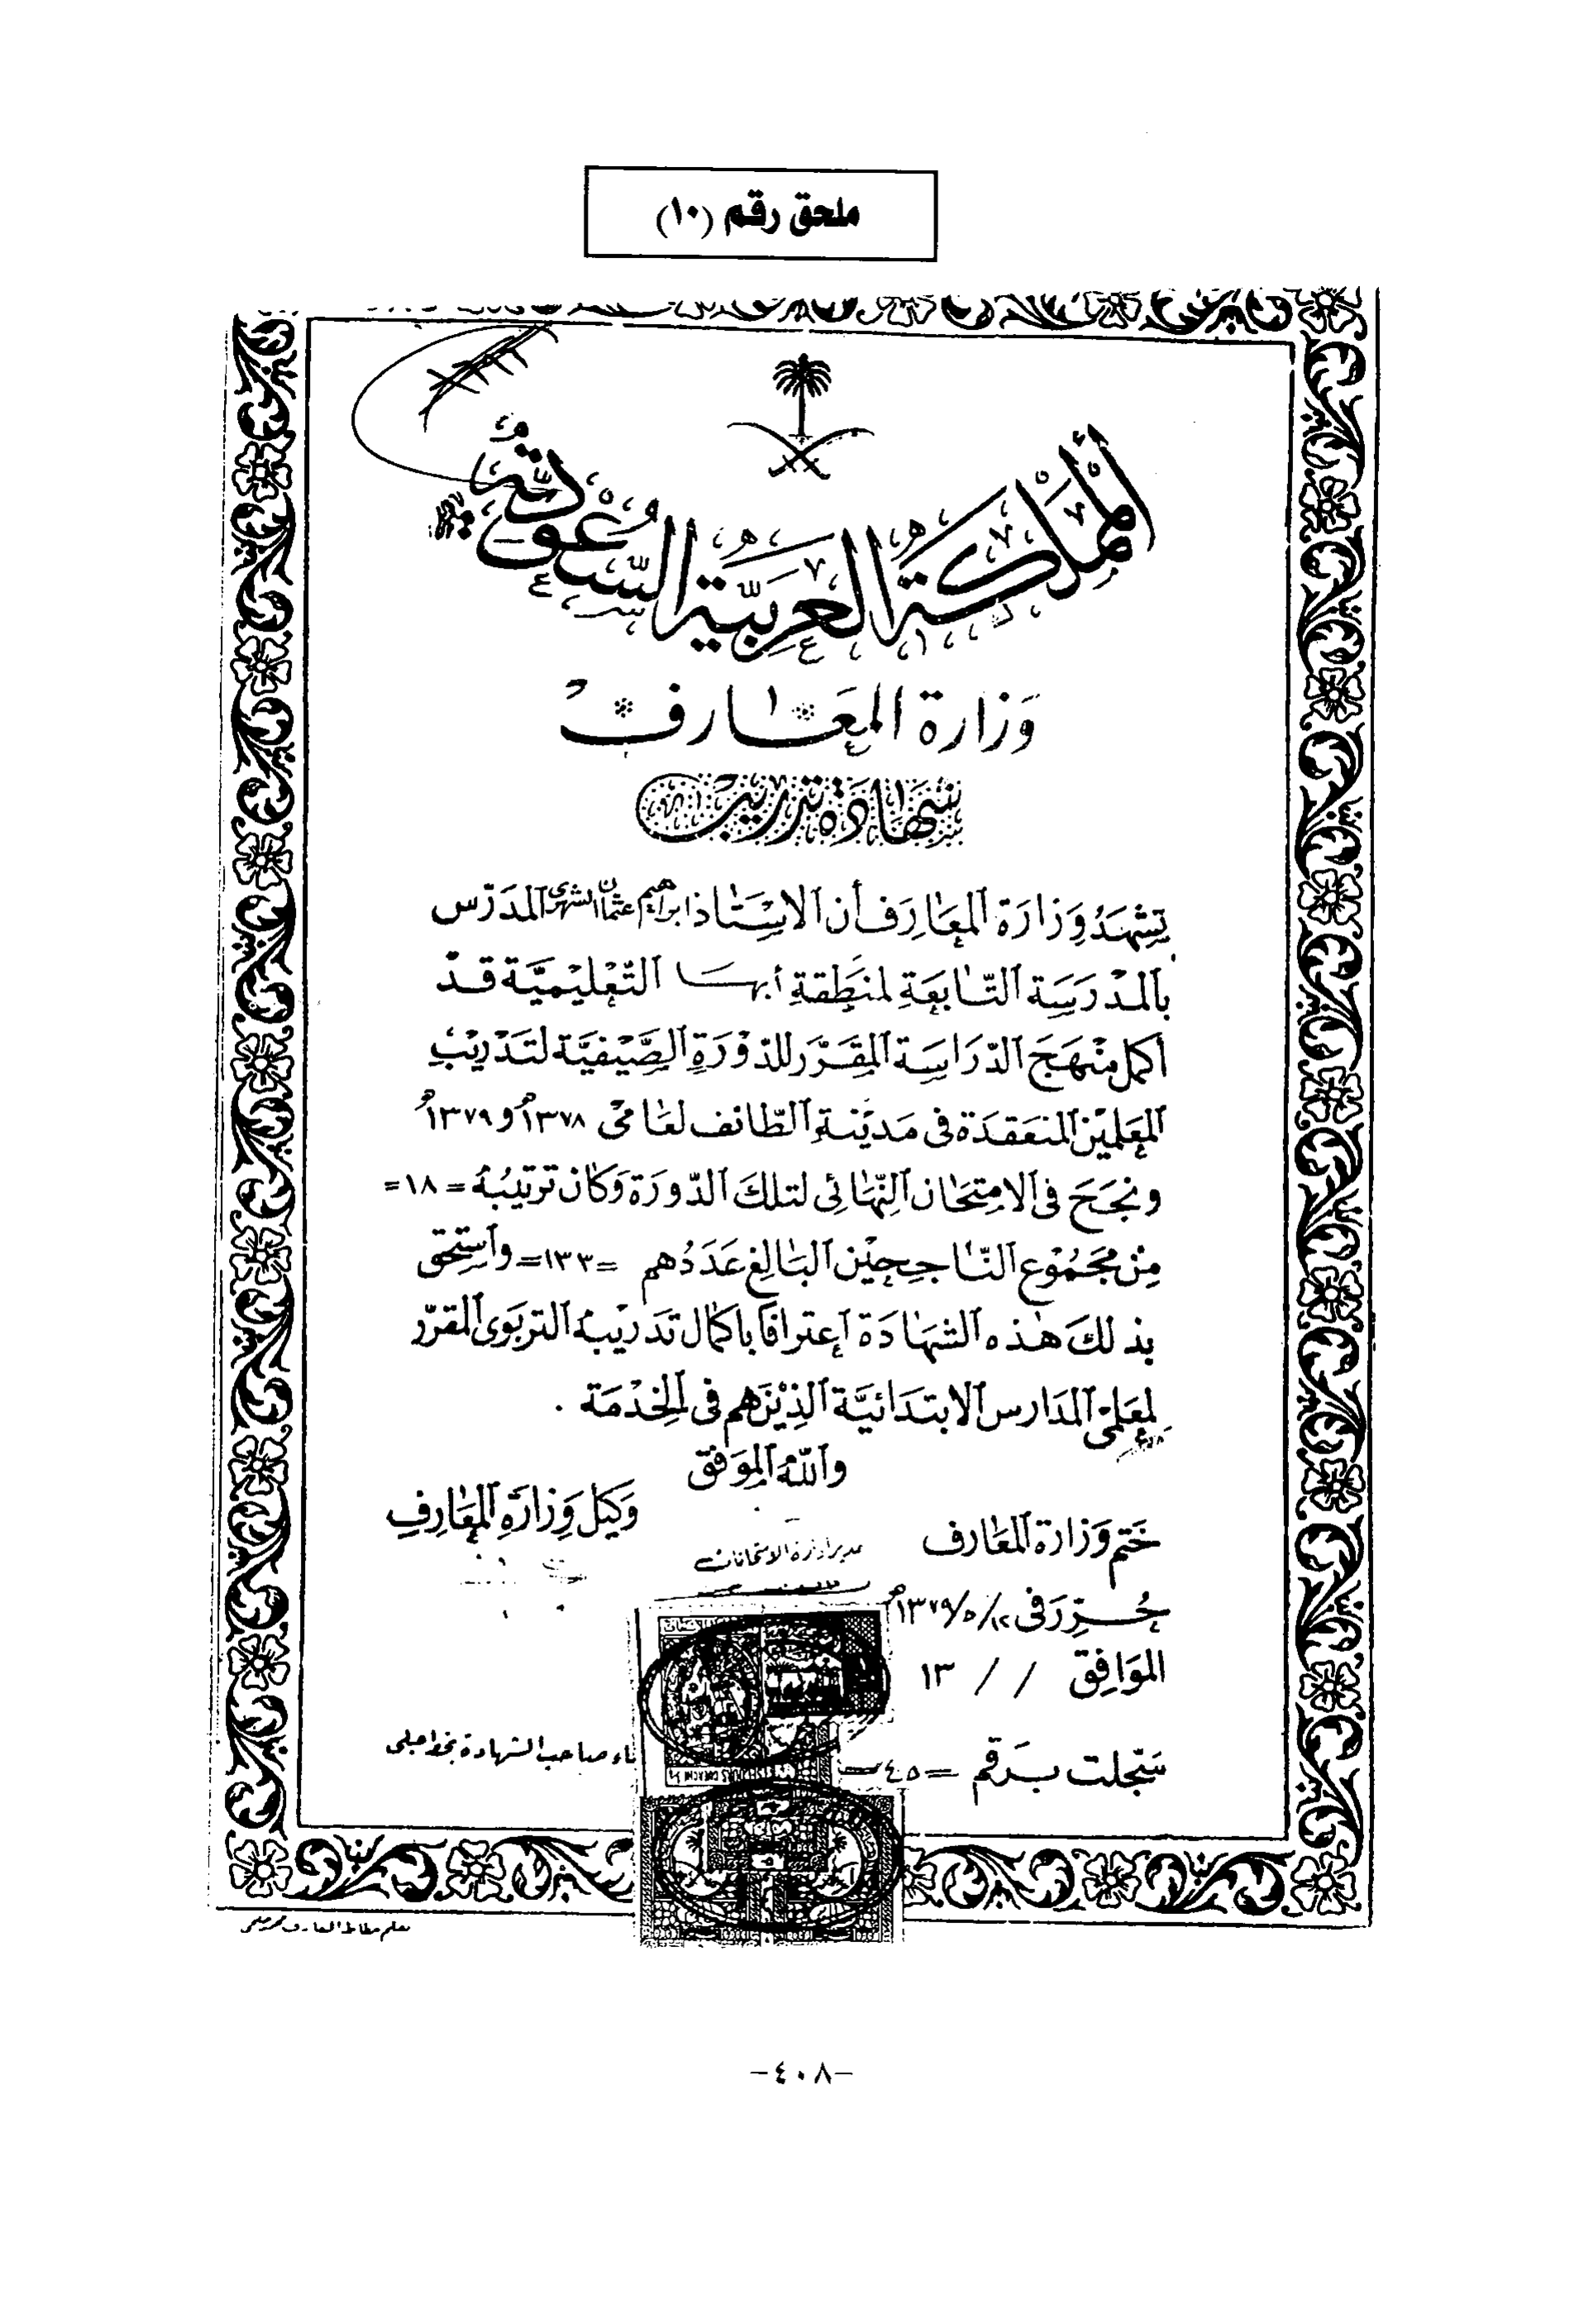 ملحق رقم (١٠)
المملكة العربية السعودية
وزارة المعارف
شهادة تدريب
تشهد وزارة المعارف أن الاستاذ ابراهيم عثمان الشهري المدرس
بالمدرسة التابعة لمنطقة أبها التعليمية قد
أكمل منهج الدراسة المقرر للدورة الصيفية لتدريب
المعلمين المنعقدة في مدينة الطائف لعامي ١٣٧٨هـ و ١٣٧٩هـ
ونجح في الامتحان النهائي لتلك الدورة وكان ترتيبه =١٨=
من مجموع الناجحين البالغ عددهم =١٣٣= واستحق
بذلك هذه الشهادة اعترافا باكمال تدريبه التربوي المقرر
لمعلمي المدارس الابتدائية الذين هم في الخدمة .
والله الموفق
ختم وزارة المعارف
مدير ادارة الامتحانات
وكيل وزارة المعارف
حرر في ١٢/٥/١٣٧٩هـ
الموافق / / ١٣
سجلت برقم =٤٥=
صاحب الشهادة بخوا
-٤٠٨-